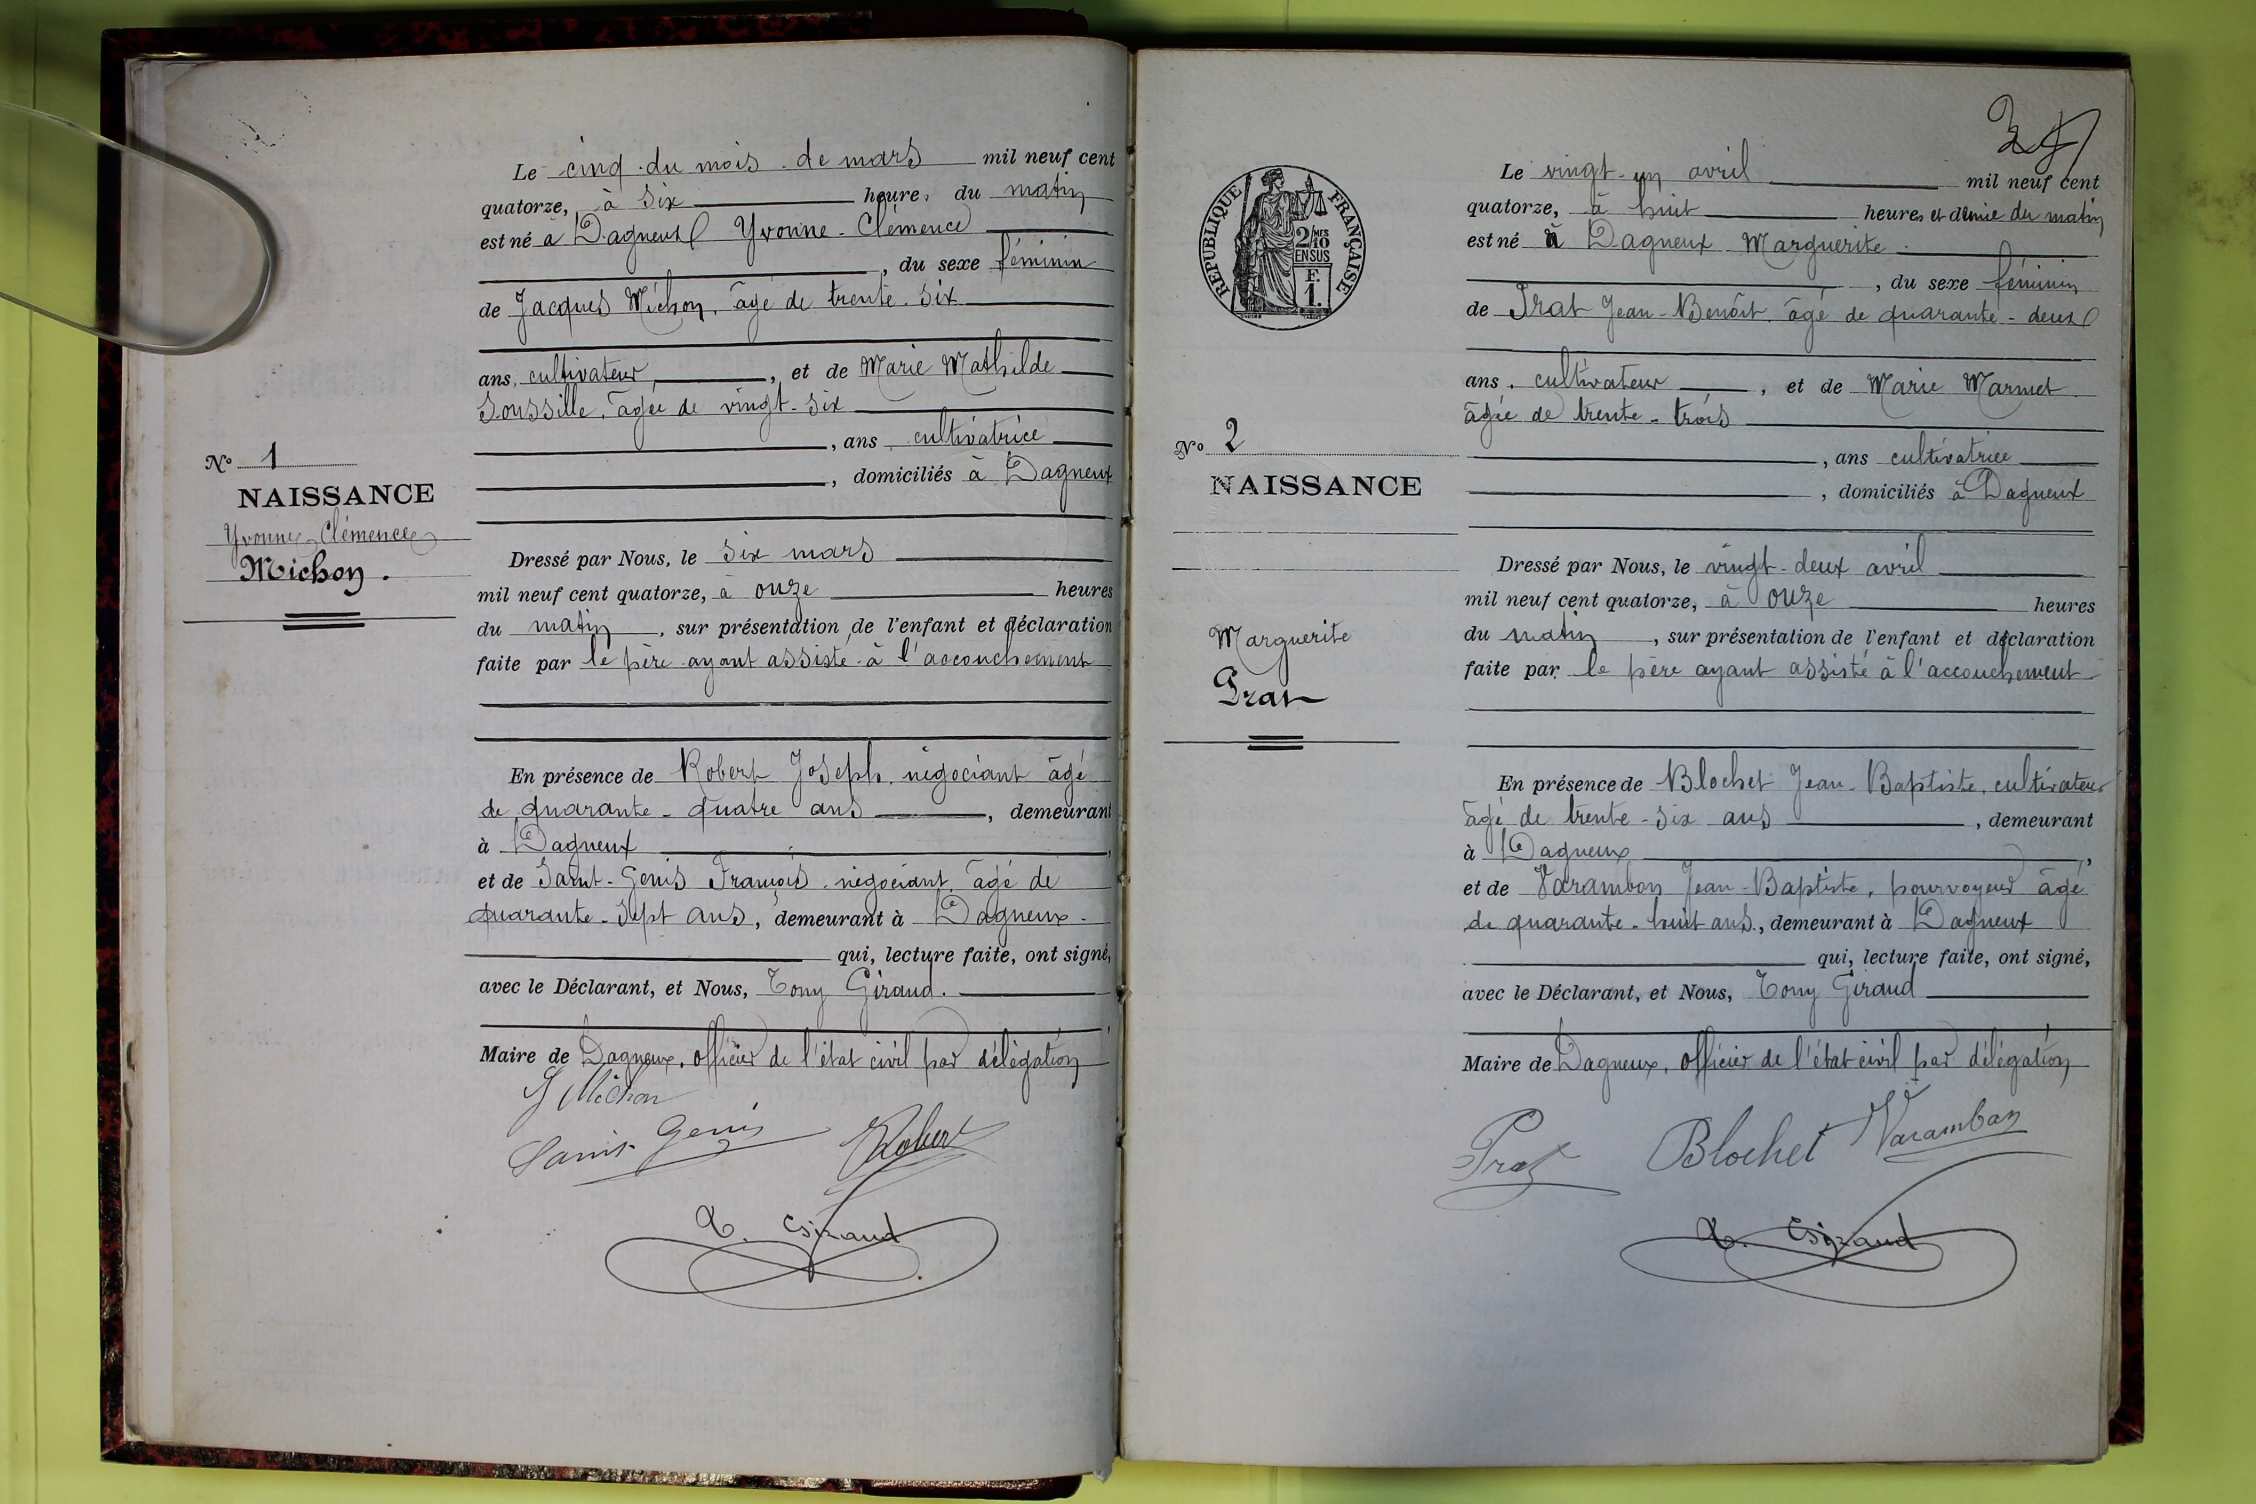 Le cinq du mois de mars mil neuf cent
quatorze, à six heures du matin
est né à Dagneux Yvonne-Clémence
, du sexe féminin
de Jacques Michon, âgé de trente-six
ans, cultivateur, et de Marie Mathilde
Soussille, âgée de vingt-six
, ans cultivatrice
, domiciliés à Dagneux
Nº 1
NAISSANCE
Yvonne-Clémence
Michon.
Dressé par Nous, le six mars
mil neuf cent quatorze, à onze heures
du matin, sur présentation de l'enfant et déclaration
faite par le père ayant assisté à l'accouchement
En présence de Robert Joseph, négociant âgé
de quarante-quatre ans, demeurant
à Dagneux,
et de Saint-Genis François, négociant, âgé de
quarante-sept ans, demeurant à Dagneux
qui, lecture faite, ont signé,
avec le Déclarant, et Nous, Tony Giraud.
Maire de Dagneux, officier de l'état civil par délégation
J Michon
Saint-Genis Robert
T. Giraud
RÉPUBLIQUE FRANÇAISE
2/10 MES
EN SUS
F.
1.
Le vingt-un avril mil neuf cent
quatorze, à huit heures et demie du matin
est né à Dagneux Marguerite
, du sexe féminin
de Prat Jean-Benoît âgé de quarante-deux
ans, cultivateur, et de Marie Marmet
âgée de trente-trois
, ans cultivatrice
, domiciliés à Dagneux
Nº 2
NAISSANCE
Marguerite
Prat
Dressé par Nous, le vingt-deux avril
mil neuf cent quatorze, à onze heures
du matin, sur présentation de l'enfant et déclaration
faite par le père ayant assisté à l'accouchement
En présence de Blochet Jean-Baptiste, cultivateur
âgé de trente-six ans, demeurant
à Dagneux,
et de Varambon Jean-Baptiste, pourvoyeur âgé
de quarante-huit ans, demeurant à Dagneux
qui, lecture faite, ont signé,
avec le Déclarant, et Nous, Tony Giraud
Maire de Dagneux, officier de l'état civil par délégation
Prat Blochet Varambon
T. Giraud